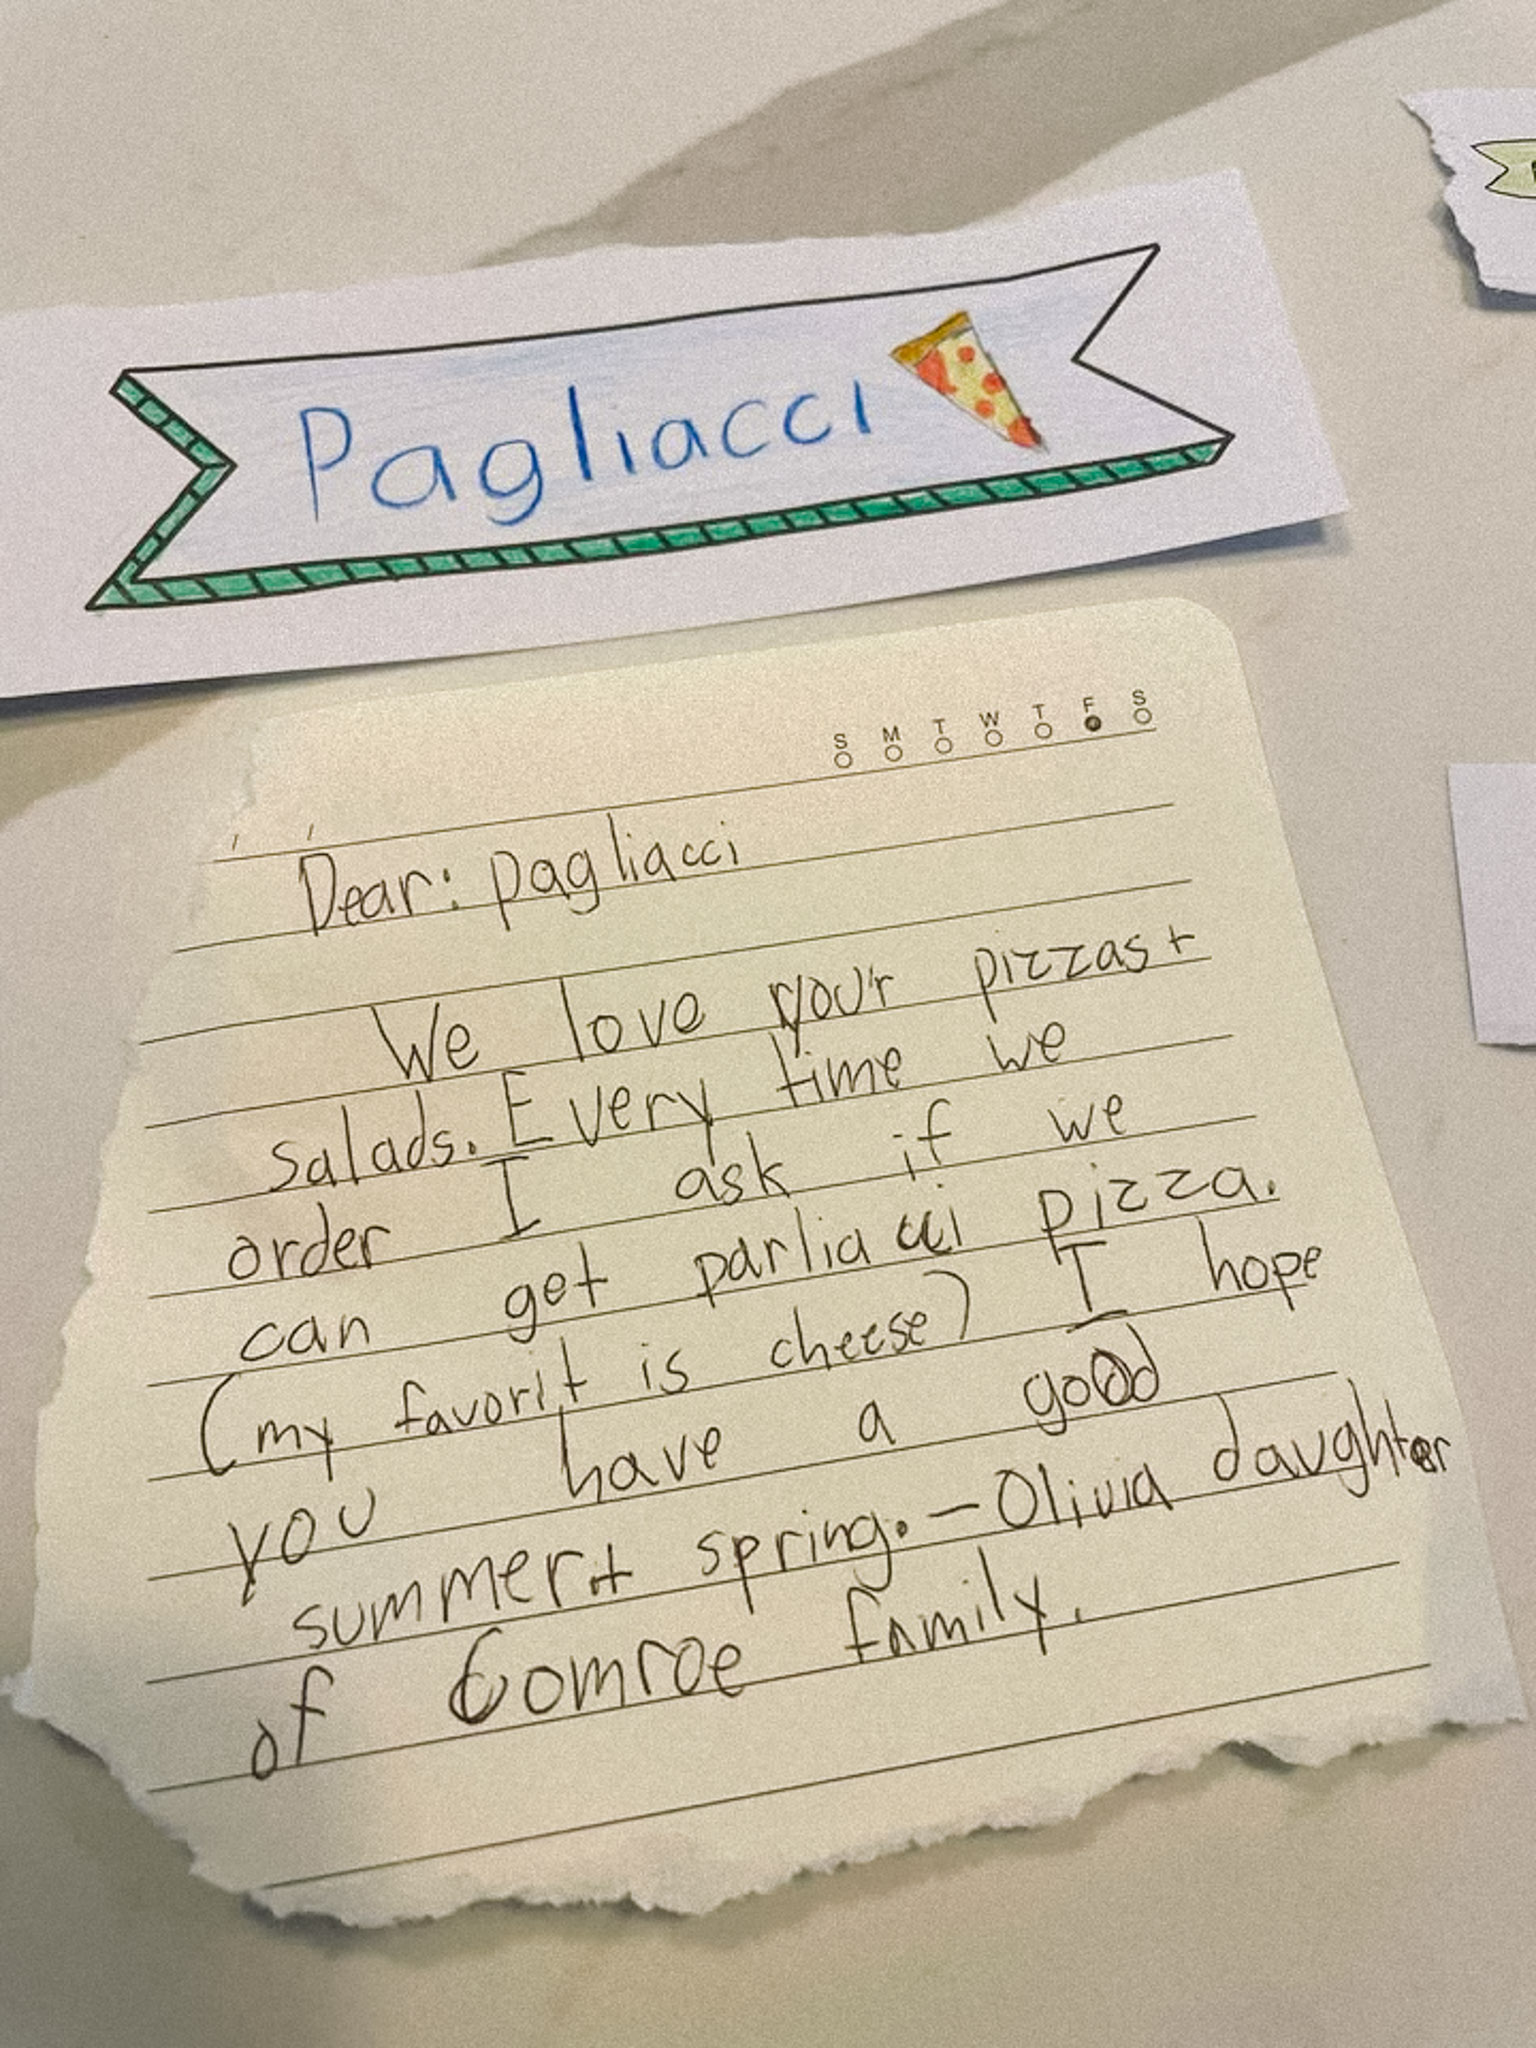 Pagliacci
S M T W T F S
Dear: pagliacci
We love your pizzas +
salads. Every time we
order I ask if we
can get parliacci pizza.
(my favorit is cheese) I hope
you have a good
summer + spring. - Olivia daughter
of Comroe family.